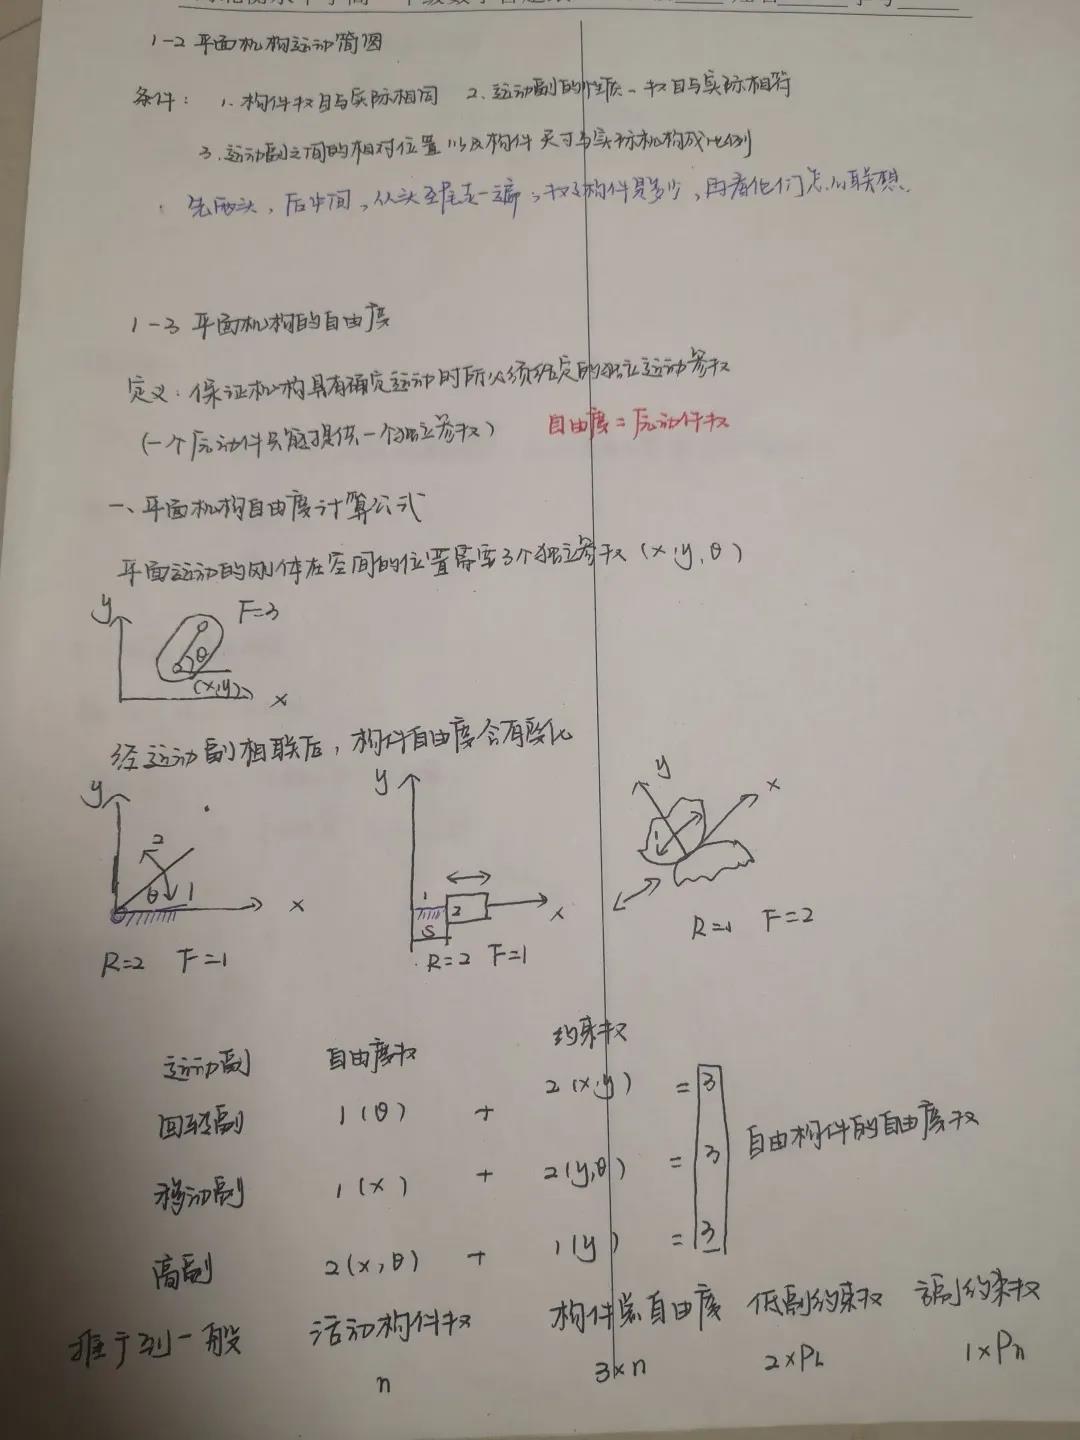 1-2 平面机构运动简图
条件: 1. 构件数目与实际相同 2. 运动副的性质、数目与实际相符
3. 运动副之间的相对位置以及构件尺寸与实际机构成比例
先两头,后中间,从头至尾走一遍,数数构件是多少,再看他们怎么联想.
1-3 平面机构的自由度
定义:保证机构具有确定运动时所必须给定的独立运动参数
(一个原动件只能提供一个独立参数) 自由度=原动件数
一、平面机构自由度计算公式
平面运动的刚体在空间的位置需要3个独立参数(x,y,θ)
y F=3
θ
(x,y)
x
经运动副相联后,构件自由度会有变化
y y y x
2 θ 1 x
1 2 S x
R=2 F=1 R=2 F=1 R=1 F=2
运动副 自由度数 约束数
回转副 1(θ) + 2(x,y) = 3
移动副 1(x) + 2(y,θ) = 3 自由构件的自由度数
高副 2(x,θ) + 1(y) = 3
推广到一般 活动构件数 构件总自由度 低副约束数 高副约束数
n 3×n 2×PL 1×Pn